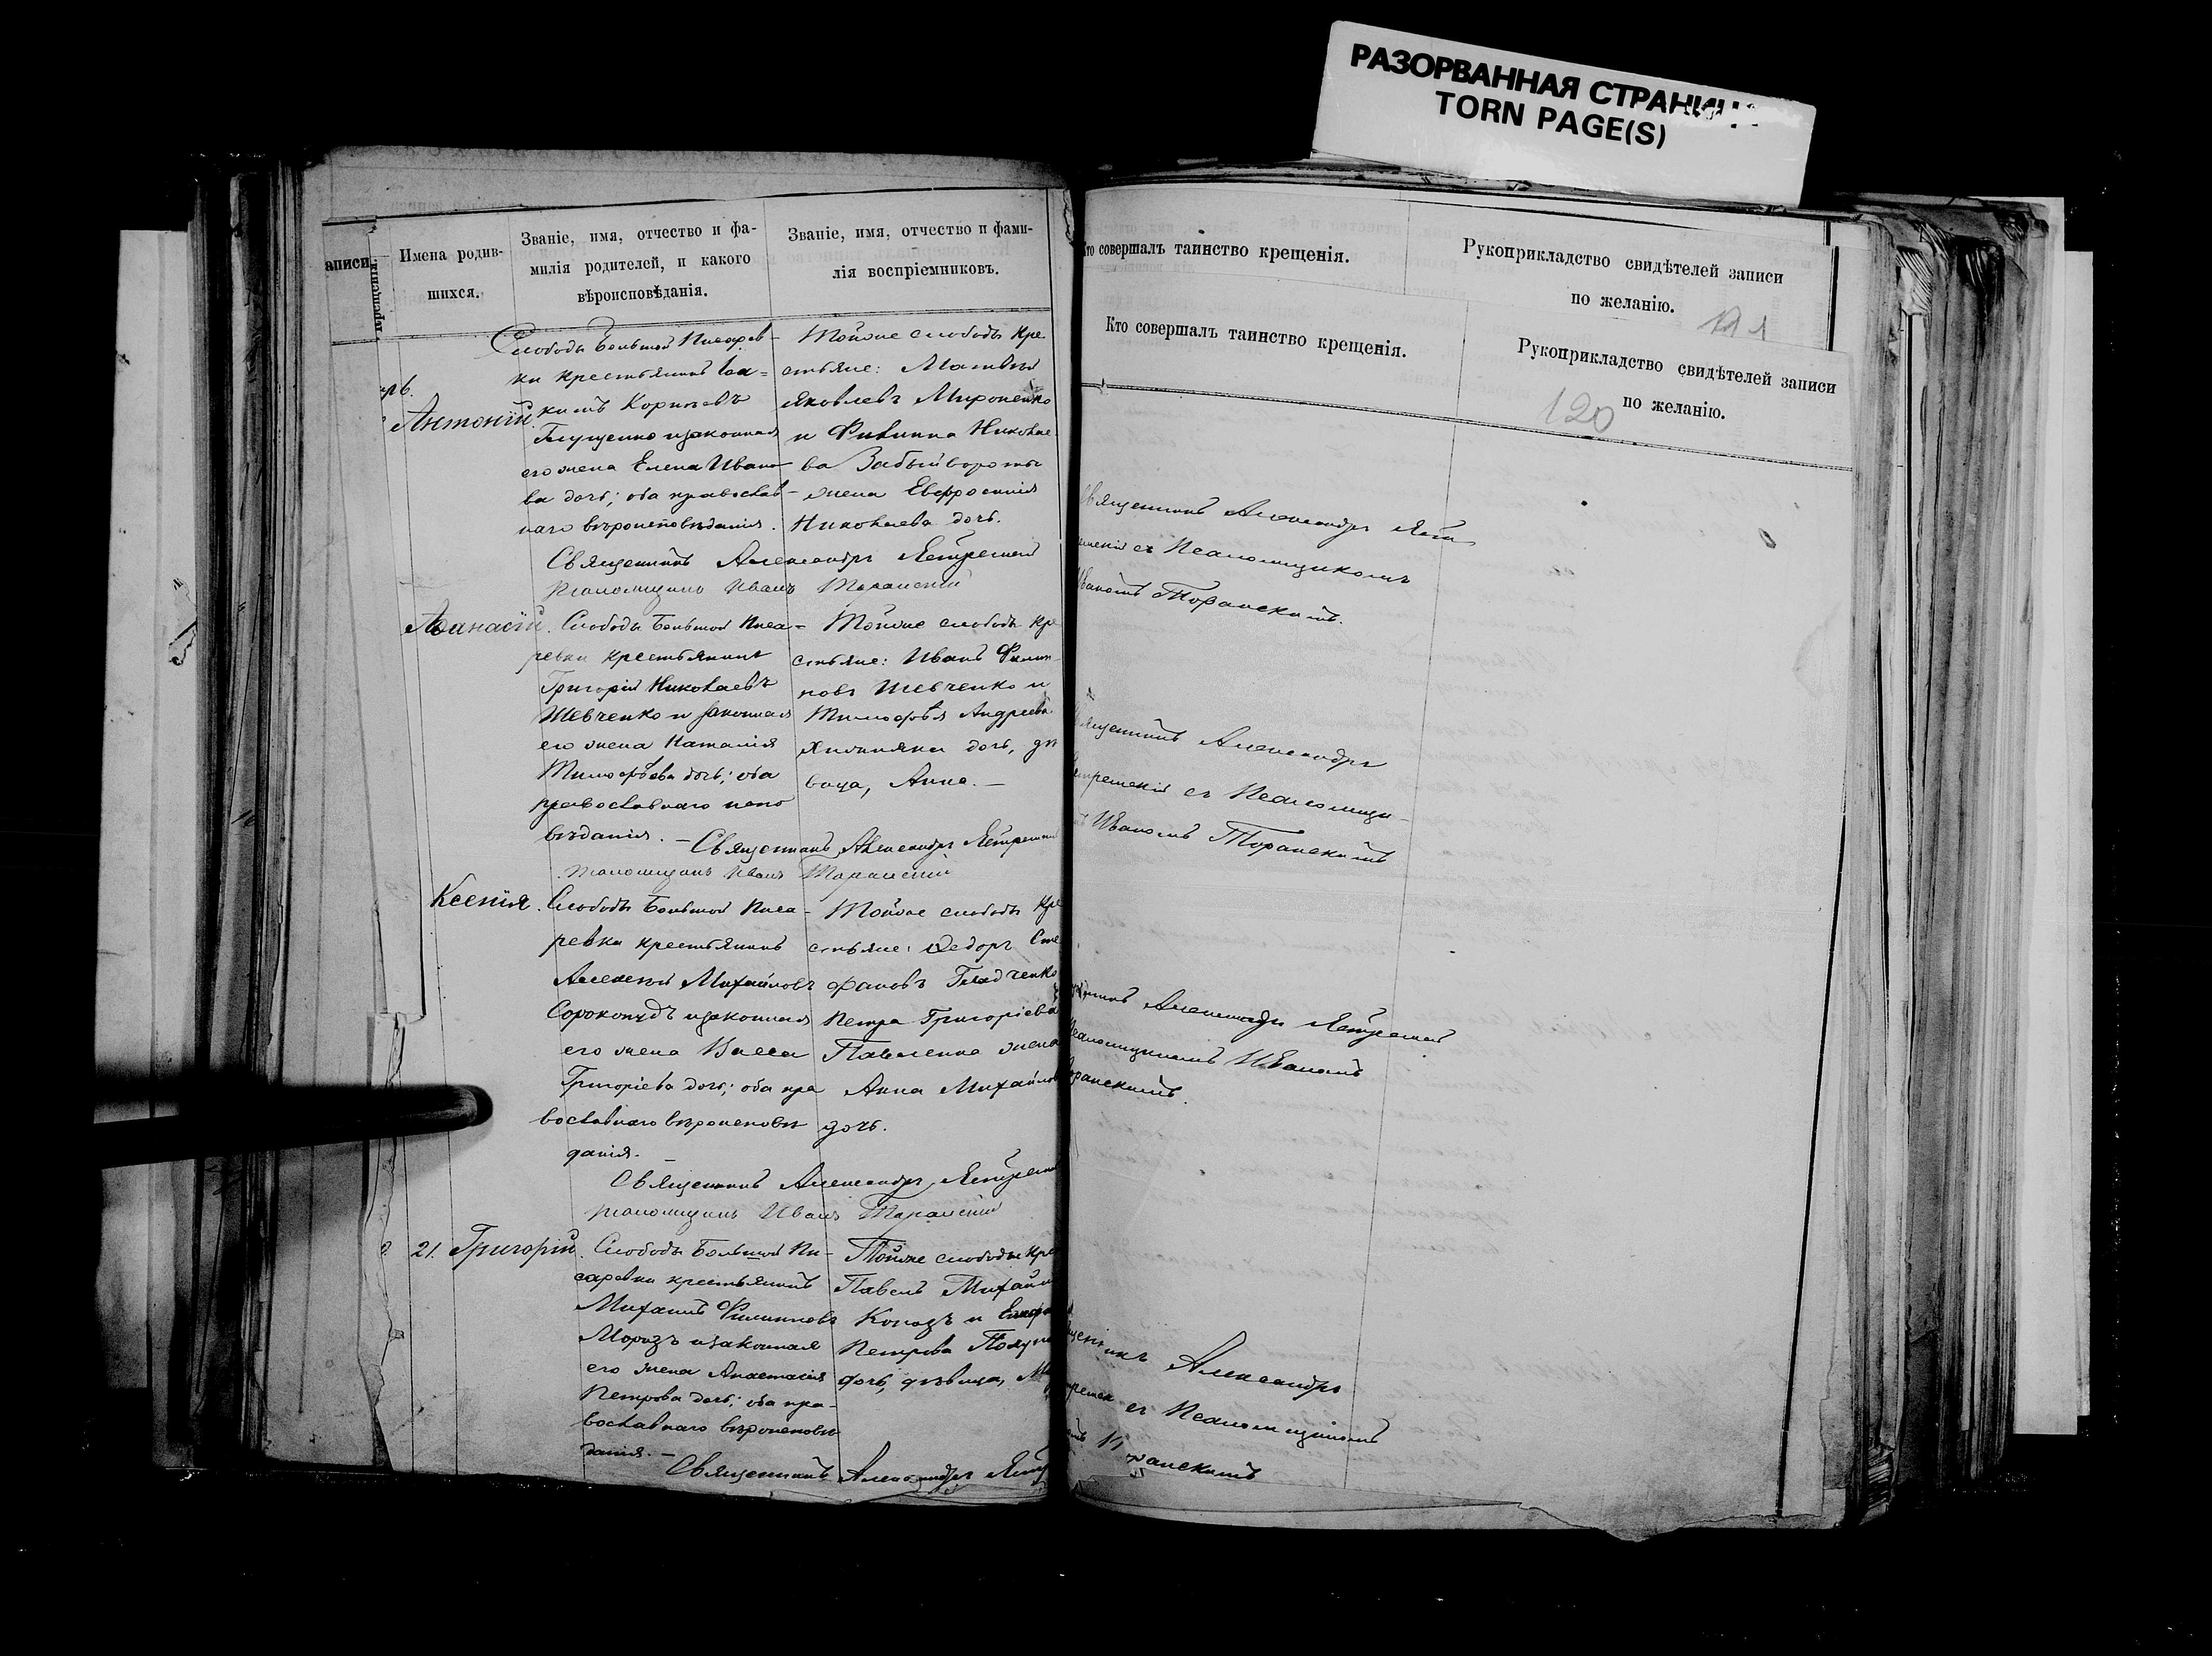 РАЗОРВАННАЯ СТРАНИЦА
TORN PAGE(S)
аписи.
крещенія.
Имена родив-
шихся.
Званіе, имя, отчество и фа-
милія родителей, и какого
вѣроисповѣданія.
Званіе, имя, отчество и фами-
лія воспріемниковъ.
Антоній.
Слободы Большой Писарев-
ки крестьянинъ
Глущенко и законная
его жена Елена Ивано-
ва дочь; оба православ-
наго вѣроисповѣданія.
Тойже слободы кре
стьяне: Матвѣй
Яковлевъ Мироненко
и Филиппа Николае
ва Забыйвороты
жена Евфросинія
Николаева дочь.
Священникъ Александръ Ястремскій
Псаломщикъ Иванъ Торанскій
Аѳанасій.
Слободы Большой Писа-
ревки крестьянинъ
Григорій Николаевъ
Шевченко и законная
его жена Наталія
Тимофѣева дочь; оба
православнаго испо
вѣданія. —
Тойже слободы кре
стьяне: Иванъ Филип-
повъ Шевченко и
Тимофѣя Андреева
дочь, дѣ
вица, Анна. —
Священникъ Александръ Ястремскій
Псаломщикъ Иванъ Торанскій
Ксенія.
Слободы Большой Писа-
ревки крестьянинъ
Алексѣй Михайловъ
Сорокопудъ и законная
его жена Васса
Григоріева дочь; оба пра
вославнаго вѣроисповѣ
данія. —
Тойже слободы кре
стьяне: Ѳедоръ Сте
фановъ Гладченко
Петра Григоріева
Павленка жена
Анна Михайлов
дочь.
Священникъ Александръ Ястремскій
Псаломщикъ Иванъ Торанскій
21. Григорій.
Слободы Большой Пи-
саревки крестьянинъ
Михаилъ Филипповъ
Морозъ и законная
его жена Анастасія
Петрова дочь; оба пра-
вославнаго вѣроисповѣ
данія. —
Тойже слободы кре
Павелъ Михайл
и
Петрова
дочь, дѣвица,
Священникъ Александръ Ястр
Кто совершалъ таинство крещенія.
Рукоприкладство свидѣтелей записи
по желанію.
Кто совершалъ таинство крещенія.
Рукоприкладство свидѣтелей записи
по желанію.
120
Священникъ Александръ Яст
ремскій съ Псаломщикомъ
Иваномъ Торанскимъ.
Священникъ Александръ
Ястремскій съ Псаломщи-
Иваномъ Торанскимъ
Александръ Ястремскій
Псаломщикомъ Иваномъ
Торанскимъ.
Александръ
съ Псаломщикомъ
Торанскимъ